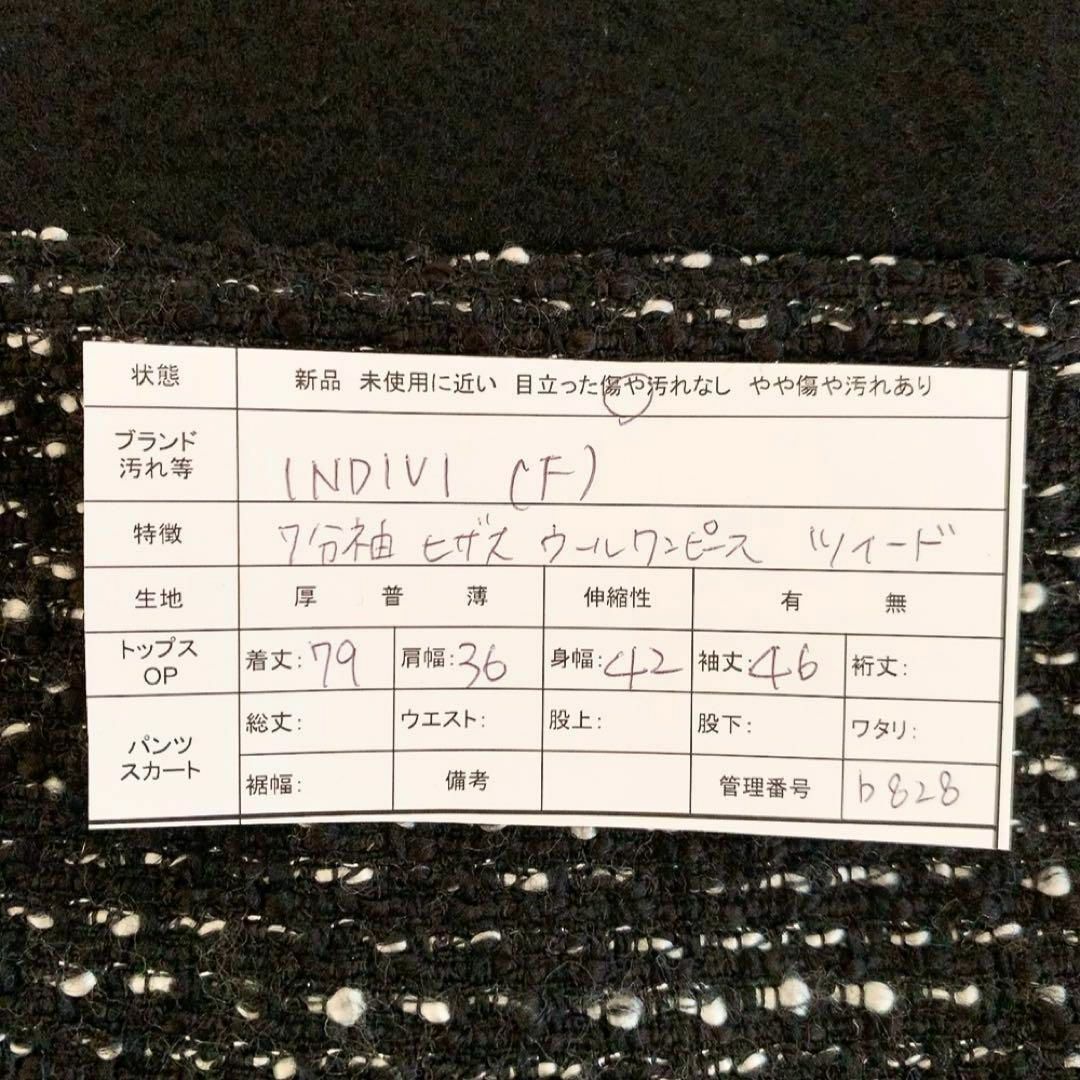 状態 新品 未使用に近い 目立った傷や汚れなし やや傷や汚れあり
ブランド
汚れ等 INDIVI (F)
特徴 7分袖 ヒザス ウールワンピース ツイード
生地 厚 普 薄 伸縮性 有 無
トップス
OP 着丈:79 肩幅:36 身幅:42 袖丈:46 裄丈:
パンツ
スカート 総丈: ウエスト: 股上: 股下: ワタリ:
裾幅: 備考 管理番号 b828